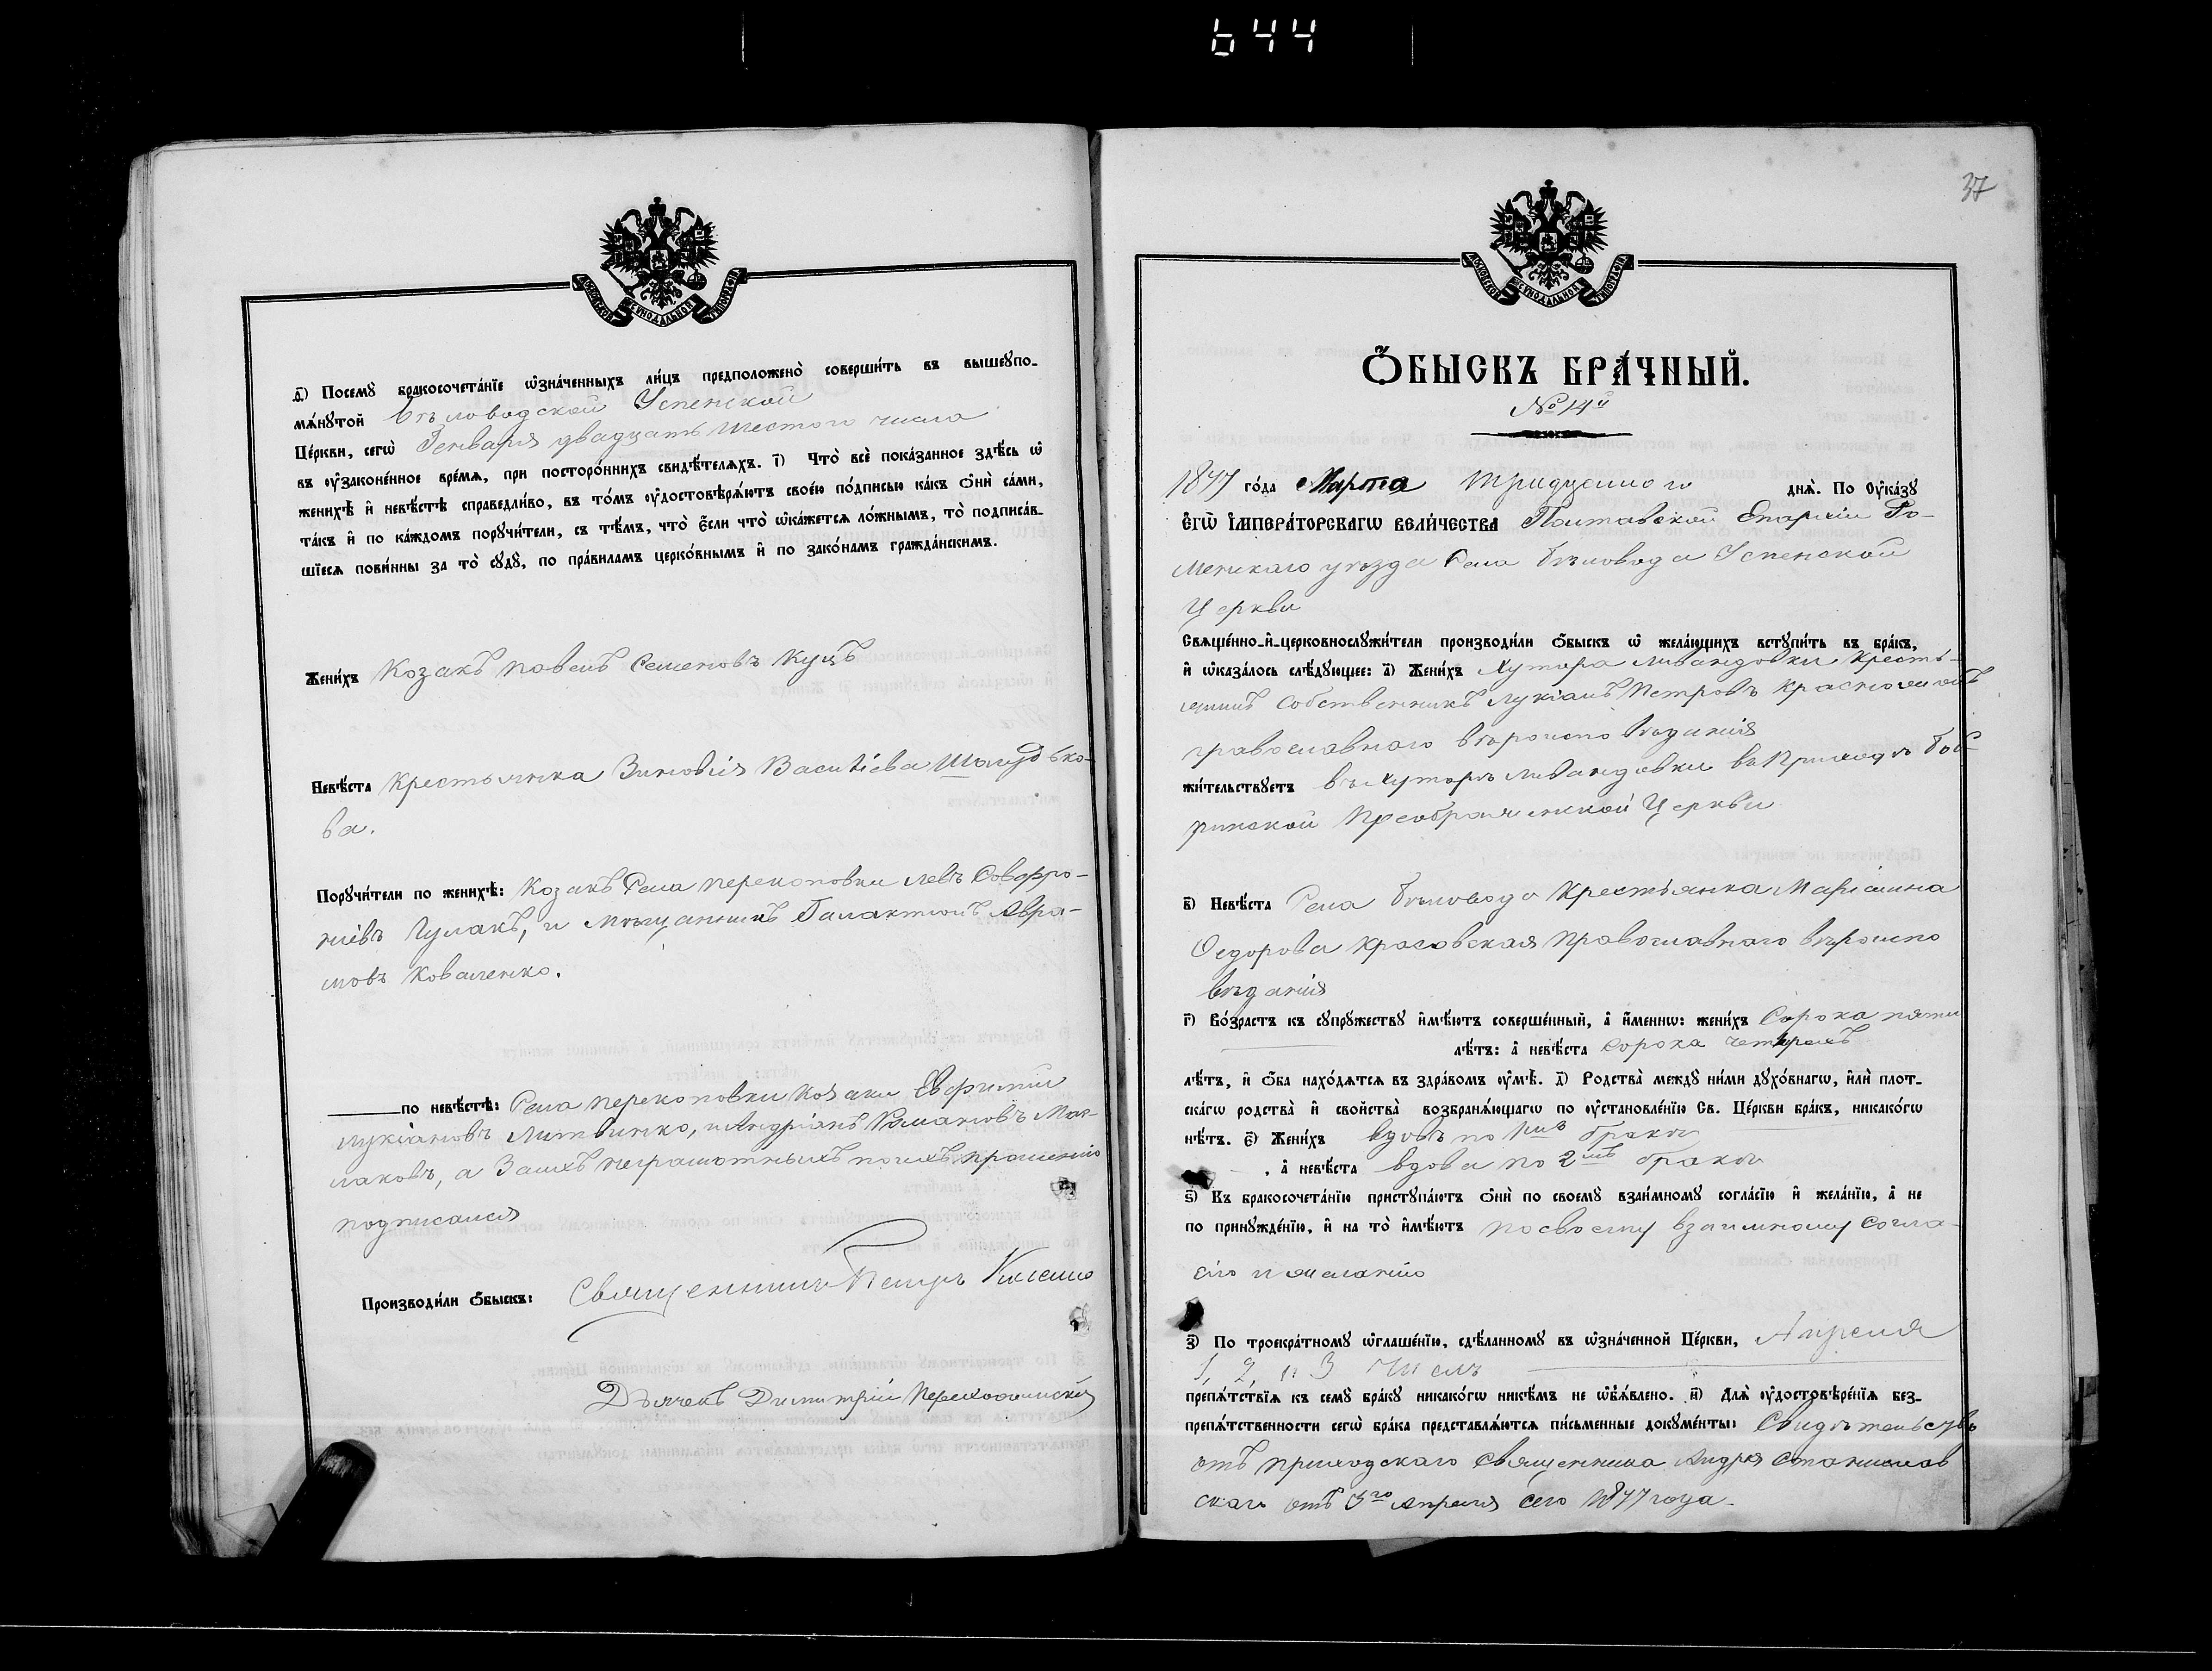 644
МОСКОВСКОЙ СѴНОДАЛЬНОЙ ТИПОГРАФІИ
ѳ҃) Посемꙋ бракосочета́нїе ѡ҆зна́ченныхъ ли́цъ предположено̀ соверши́ть въ вышеꙋпо-
мѧ́нꙋтой Бѣловодской Успенской
Це́ркви, сегѡ̀ Генваря двадцать шестого числа
въ ᲂу҆зако́ненное вре́мѧ, при посторо́ннихъ свидѣ́телѧхъ. і҃) Что̀ всѐ пока́занное здѣ́сь ѡ҆
женихѣ̀ и҆ невѣ́стѣ справедли́во, въ то́мъ ᲂу҆достовѣрѧ́ютъ свое́ю по́дписью ка́къ ѻ҆нѝ са́ми,
та́къ и҆ по ка́ждомъ порꙋчи́тели, съ тѣ́мъ, что̀ є҆́сли что̀ ѡ҆ка́жетсѧ ло́жнымъ, то̀ подписа́в-
шїесѧ пови́нны за то̀ сꙋдꙋ̀, по пра́виламъ церко́внымъ и҆ по зако́намъ гражда́нскимъ.
Жени́хъ Козакъ Павелъ Семеновъ Куцъ
Невѣ́ста Крестьянка Зиновія Василіева
ва.
Порꙋчи́тели по женихѣ̀: Козакъ Села Перекоповки Левъ Софро-
ніевъ Гулакъ, и мѣщанинъ Галактіонъ Авра-
мовъ Коваленко.
по невѣ́стѣ: Села Перекоповки Козаки Евфимій
Лукіановъ Литвинко, и Андріанъ Романовъ Мая-
лаковъ, а За нихъ неграмотныхъ по ихъ прошенію
подписался
Производи́ли ѻ҆́быскъ: Священникъ Петръ
Дьячекъ Димитрій
37
МОСКОВСКОЙ СѴНОДАЛЬНОЙ ТИПОГРАФІИ
Ѻ҆́БЫСКЪ БРА́ЧНЫЙ.
№ 14й
1877 го́да Марта Тридцатого днѧ̀. По Оу҆ка́зꙋ
Є҆гѡ̀ І҆мпера́торскагѡ Вели́чества Полтавской Епархіи Ро-
менскаго уѣзда Села Бѣловода Успенской
Церкви
Свѧще́нно-и҆-церковнослꙋжи́тели производи́ли ѻ҆́быскъ ѡ҆ жела́ющихъ встꙋпи́ть въ бра́къ,
и҆ ѡ҆каза́лось слѣ́дꙋющее: а҃) Жени́хъ Хутора Ливандовки Кресть-
янинъ Собственникъ Лукіанъ Петровъ
православнаго вѣроисповѣданія
жи́тельствꙋетъ въ Хуторѣ Ливандовки въ Приходѣ Боб-
рикской Преображенской Церкви
в҃) Невѣ́ста Села Бѣловода Крестьянка Маріамна
Ѳедорова Красовская Православнаго вѣроиспо
вѣданія
г҃) Во́зрастъ къ сꙋпрꙋ́жествꙋ и҆мѣ́ютъ соверше́нный, а҆ и҆́меннѡ: жени́хъ Сорока пяти
лѣ́тъ: а҆ невѣ́ста сорока четырехъ
лѣ́тъ, и҆ ѻ҆́ба нахо́дѧтсѧ въ здра́вомъ ᲂу҆мѣ̀. д҃) Родства̀ междꙋ ни́ми дꙋхо́внагѡ, и҆лѝ плот-
ска́гѡ родства̀ и҆ сво́йства̀ возбранѧ́ющагѡ по ᲂу҆становле́нїю Св. Це́ркви бра́къ, никако́гѡ
нѣ́тъ. є҃) Жени́хъ вдовъ по 1мъ бракѣ
, а҆ невѣ́ста вдова по 2мъ бракѣ
ѕ҃) Къ бракосочета́нїю пристꙋпа́ютъ ѻ҆нѝ по своемꙋ̀ взаи́мномꙋ согла́сїю и҆ жела́нїю, а҆ не
по принꙋжде́нїю, и҆ на то̀ и҆мѣ́ютъ по своему взаимному согла-
сію и желанію
з҃) По троекра́тномꙋ ѡ҆глаше́нїю, сдѣ́ланномꙋ въ ѡ҆зна́ченной Це́ркви, Апрѣля
1, 2, и 3 числъ
препѧ́тствїѧ къ семꙋ̀ бра́кꙋ никако́гѡ никѣ́мъ не ѡ҆б̾ѧ́влено. и҃) Длѧ̀ ᲂу҆достовѣре́нїѧ без-
препѧ́тственности сегѡ̀ бра́ка представлѧ́ютсѧ пи́сьменные докꙋме́нты: Свидѣтельство
отъ приходскаго Священника Андрея Станислав
скаго отъ 3го Апреля сего 1877 года.